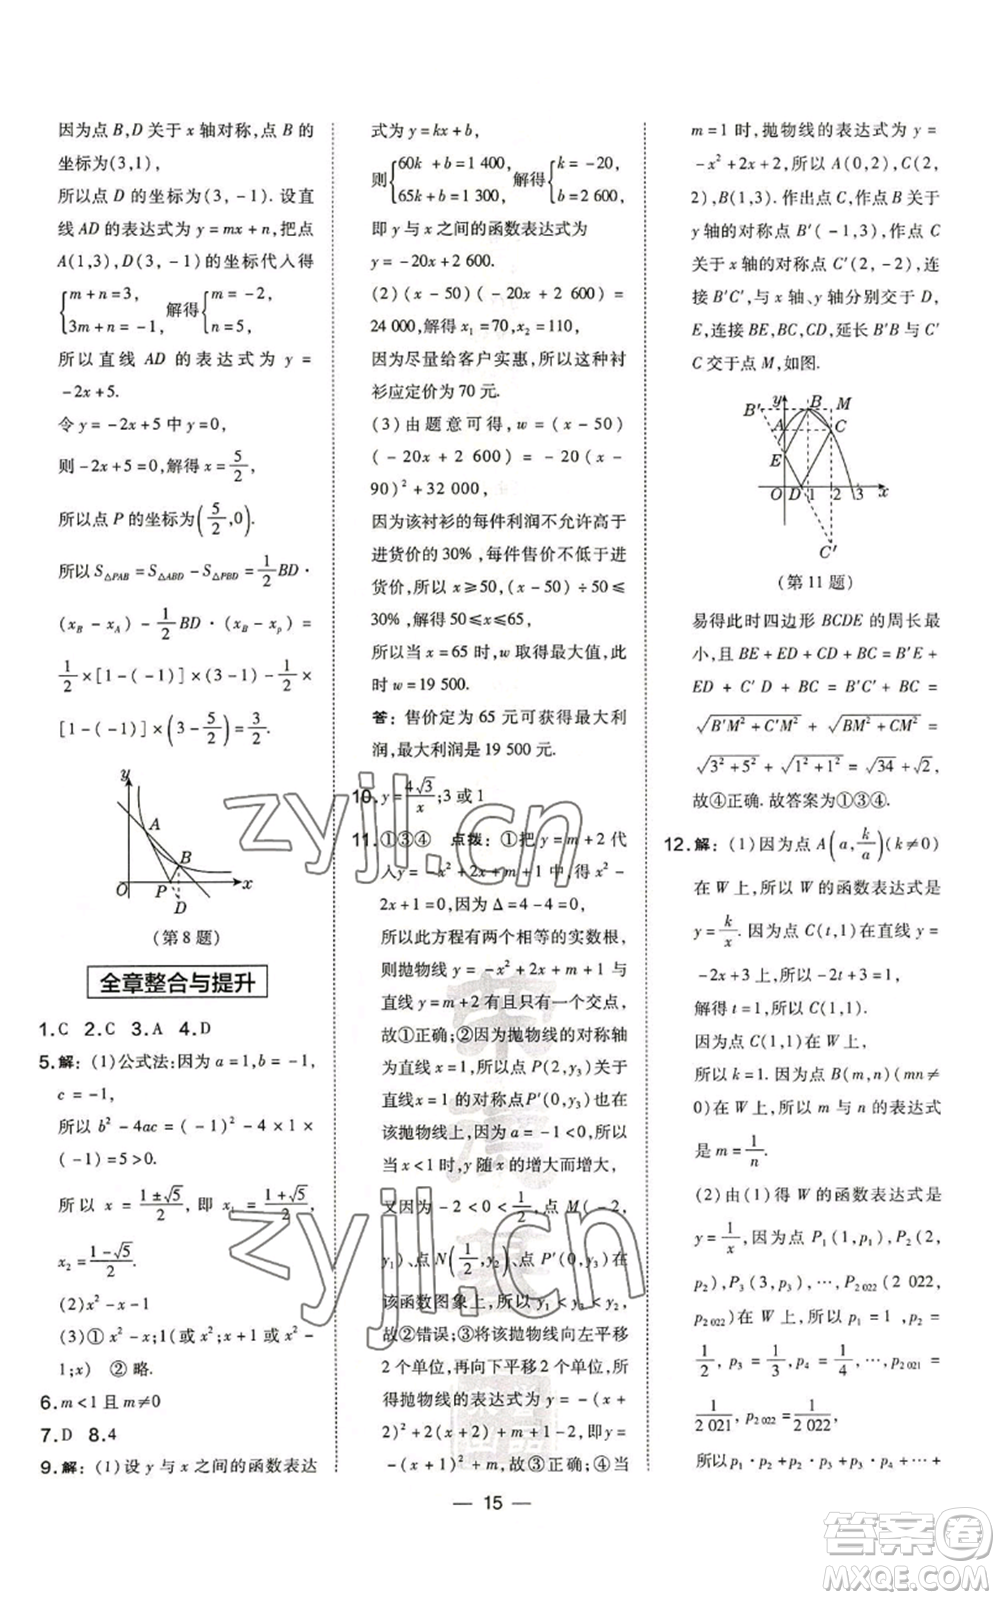 因为点 B,D 关于 x 轴对称,点 B 的
坐标为(3,1),
所以点 D 的坐标为(3,-1). 设直
线 AD 的表达式为 y=mx+n,把点
A(1,3),D(3,-1)的坐标代入得
{m+n=3, 3m+n=-1, 解得{m=-2, n=5,
所以直线 AD 的表达式为 y=
-2x+5.
令 y=-2x+5 中 y=0,
则-2x+5=0,解得 x=5/2,
所以点 P 的坐标为(5/2,0).
所以 S△PAB=S△ABD-S△PBD=1/2 BD·
(xB-xA)-1/2 BD·(xB-xp)=
1/2×[1-(-1)]×(3-1)-1/2×
[1-(-1)]×(3-5/2)=3/2.
y
A
B
O
P
x
D
(第 8 题)
全章整合与提升
1.C 2.C 3.A 4.D
5.解:(1)公式法:因为 a=1,b=-1,
c=-1,
所以 b²-4ac=(-1)²-4×1×
(-1)=5>0.
所以 x=(1±√5)/2,即 x₁=(1+√5)/2,
x₂=(1-√5)/2.
(2)x²-x-1
(3)① x²-x;1(或 x²;x+1或 x²-
1;x) ②略.
6.m<1且 m≠0
7.D 8.4
9.解:(1)设 y 与 x 之间的函数表达
式为 y=kx+b,
则{60k+b=1 400, 65k+b=1 300, 解得{k=-20, b=2 600,
即 y 与 x 之间的函数表达式为
y=-20x+2 600.
(2)(x-50)(-20x+2 600)=
24 000,解得 x₁=70,x₂=110,
因为尽量给客户实惠,所以这种衬
衫应定价为 70 元.
(3)由题意可得,w=(x-50)
(-20x+2 600)=-20(x-
90)²+32 000,
因为该衬衫的每件利润不允许高于
进货价的 30%,每件售价不低于进
货价,所以 x≥50,(x-50)÷50≤
30%,解得 50≤x≤65,
所以当 x=65 时,w 取得最大值,此
时 w=19 500.
答:售价定为 65 元可获得最大利
润,最大利润是 19 500 元.
10.y=4√3/x;3 或 1
11.①③④ 点拨:①把 y=m+2 代
入 y=-x²+2x+m+1 中,得 x²-
2x+1=0,因为 Δ=4-4=0,
所以此方程有两个相等的实数根,
则抛物线 y=-x²+2x+m+1 与
直线 y=m+2 有且只有一个交点,
故①正确;②因为抛物线的对称轴
为直线 x=1,所以点 P(2,y₃)关于
直线x=1 的对称点P'(0,y₃)也在
该抛物线上,因为 a=-1<0,所以
当 x<1时,y 随x 的增大而增大,
又因为-2<0<1/2,点 M(-2,
y₁)、点 N(1/2,y₂)、点 P'(0,y₃)在
该函数图象上,所以 y₁<y₃<y₂,
故②错误;③将该抛物线向左平移
2 个单位,再向下平移2 个单位,所
得抛物线的表达式为 y=-(x+
2)²+2(x+2)+m+1-2=
-(x+1)²+m,故③正确;④当
m=1 时,抛物线的表达式为 y=
-x²+2x+2,所以 A(0,2),C(2,
2),B(1,3). 作出点 B 关于
y 轴的对称点 B'(-1,3),作点 C
关于 x 轴的对称点 C'(2,-2),连
接 B'C',与 x 轴、y 轴分别交于 D,
E,连接 BE,BC,CD,延长 B'B 与 C'
C 交于点 M,如图.
B'
y
B
M
A
C
E
O
D
1
2
3
x
C'
(第 11 题)
易得此时四边形 BCDE 的周长最
小,且 BE+ED+CD+BC=B'E+
ED+C'D+BC=B'C'+BC=
√(B'M²+C'M²)+√(BM²+CM²)
=√(3²+5²)+√(1²+1²)=√34+√2,
故④正确. 故答案为①③④.
12.解:(1)因为点 A(a,k/a)(k≠0)
在 W 上,所以 W 的函数表达式是
y=k/x. 因为点 C(t,1)在直线 y=
-2x+3上,所以-2t+3=1,
解得 t=1,所以 C(1,1).
因为点 C(1,1)在 W 上,
所以 k=1. 因为点 B(m,n)(mn≠
0)在 W 上,所以 m 与 n 的表达式
是 m=1/n.
(2)由(1)得 W 的函数表达式是
y=1/x,因为点 P₁(1,p₁),P₂(2,
p₂),P₃(3,p₃),…,P₂₀₂₂(2 022,
p₂₀₂₂)在 W 上,所以 p₁=1,p₂=
1/2,p₃=1/3,p₄=1/4,…,p₂₀₂₁=
1/2 021,p₂₀₂₂=1/2 022,
所以 p₁·p₂·p₃·p₄+…+
— 15 —
zyjl.cn
zyjl.cn
答案卷
MXQE.COM